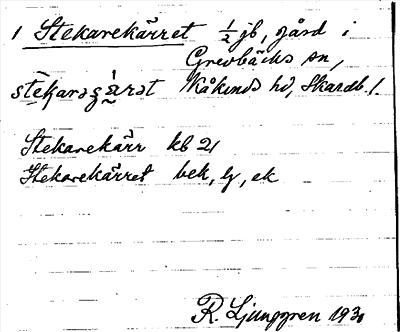 1 Stekarekärret ½ jb, gård i
Grevbäcks sn,
Kåkinds hd, Skarab l.
Stekarekärr kb 21
Stekarekärret bek, ly, ek
R. Ljunggren 1930